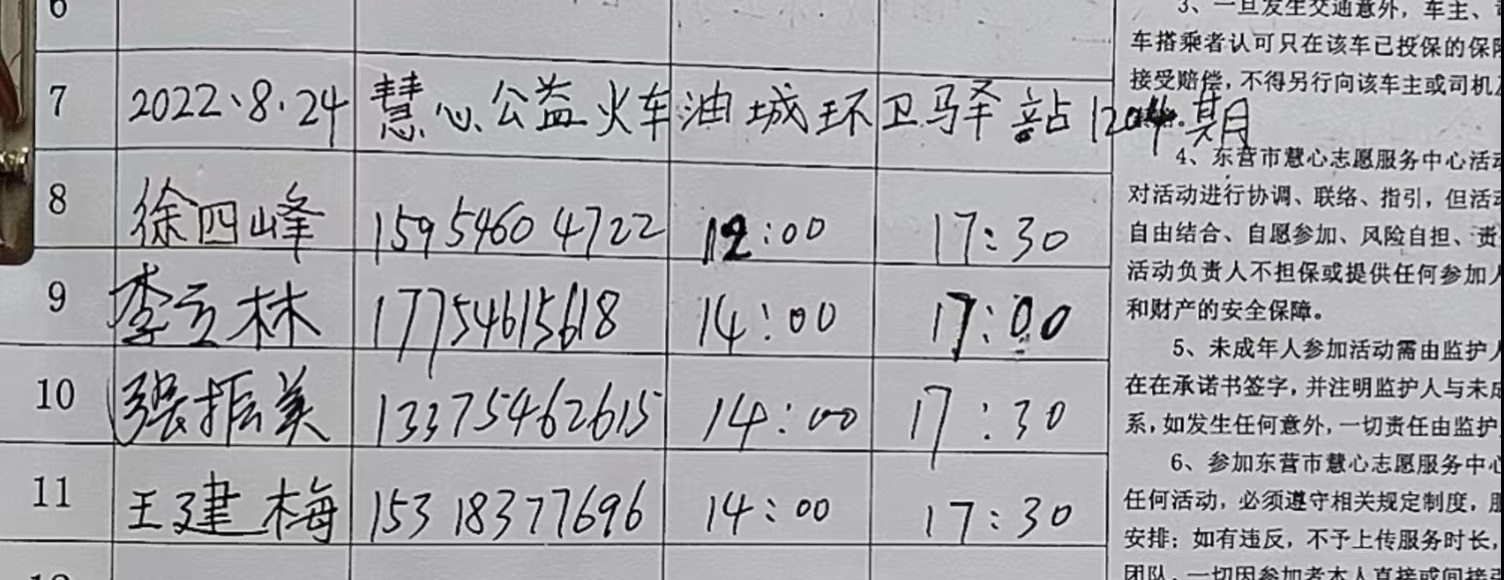 6
7 2022.8.24 慧心公益火车油城环卫驿站1204期
8 徐四峰 15954604722 12:00 17:30
9 李立林 17754615618 14:00 17:00
10 张振美 13375462615 14:00 17:30
11 王建梅 15318377696 14:00 17:30
3、一旦发生交通意外，车主、
车搭乘者认可只在该车已投保的保
接受赔偿，不得另行向该车主或司机
4、东营市慧心志愿服务中心活动
对活动进行协调、联络、指引，但活动
自由结合、自愿参加、风险自担、责
活动负责人不担保或提供任何参加人
和财产的安全保障。
5、未成年人参加活动需由监护人
在在承诺书签字，并注明监护人与未成
系，如发生任何意外，一切责任由监护
6、参加东营市慧心志愿服务中心
任何活动，必须遵守相关规定制度，服
安排；如有违反，不予上传服务时长，
团队，一切因参加者本人直接或间接